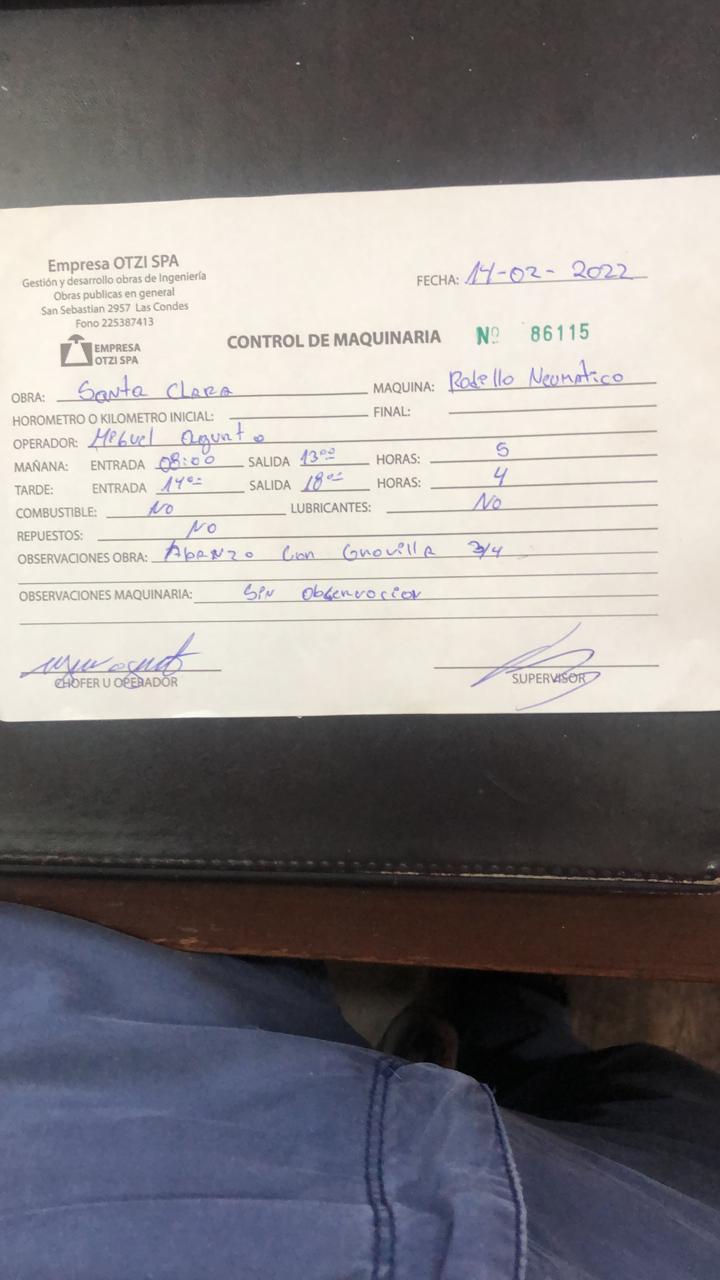 Empresa OTZI SPA
Gestión y desarrollo obras de Ingeniería
Obras publicas en general
San Sebastian 2957 Las Condes
Fono 225387413
EMPRESA
OTZI SPA
FECHA: 14-02-2022
CONTROL DE MAQUINARIA Nº 86115
OBRA: Santa Clara MAQUINA: Rodello Neumatico
HOROMETRO O KILOMETRO INICIAL: FINAL:
OPERADOR: Miguel
MAÑANA: ENTRADA 08:00 SALIDA 13:00 HORAS: 5
TARDE: ENTRADA 14:00 SALIDA 18:00 HORAS: 4
COMBUSTIBLE: No LUBRICANTES: No
REPUESTOS: No
OBSERVACIONES OBRA: Abanzo Con Gravilla 3/4
OBSERVACIONES MAQUINARIA: Sin Observacion
CHOFER U OPERADOR SUPERVISOR